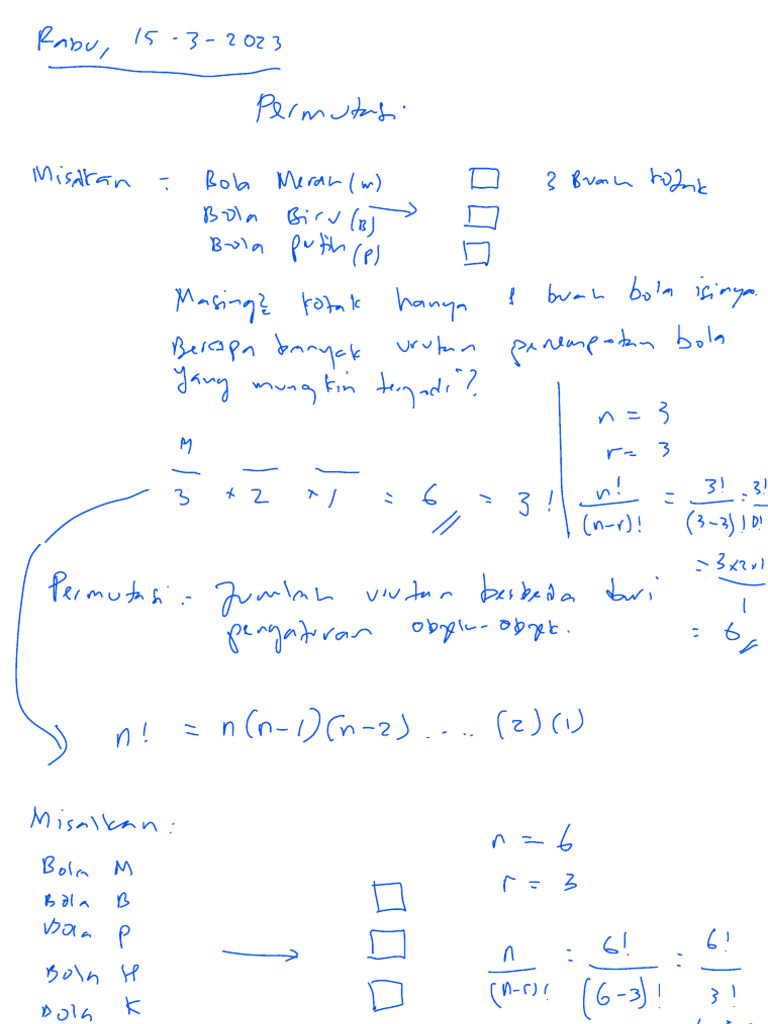 Rabu, 15-3-2023
Permutasi.
Misalkan = Bola Merah (m) 3 Buah kotak
Bola Biru (B) →
Bola putih (P)
Masing2 kotak hanya 1 buah bola isinya.
Berapa banyak urutan penempatan bola
yang mungkin terjadi?
n = 3
r = 3
M
3 × 2 × 1 = 6 = 3!
n!/(n-r)! = 3!/(3-3)! = 3!/0!
= 3x2x1/1
= 6
Permutasi = Jumlah urutan berbeda dari
pengaturan objek-objek.
n! = n(n-1)(n-2) .... (2)(1)
Misalkan:
n = 6
r = 3
Bola M
Bola B
Bola P
Bola H
Bola K
n/(n-r)! = 6!/(6-3)! = 6!/3!